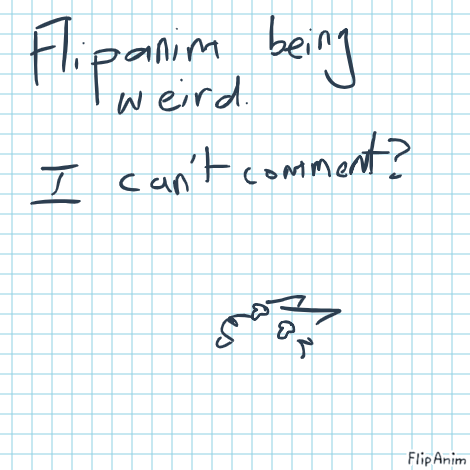 Flipanim being
weird.
I can't comment?
FlipAnim